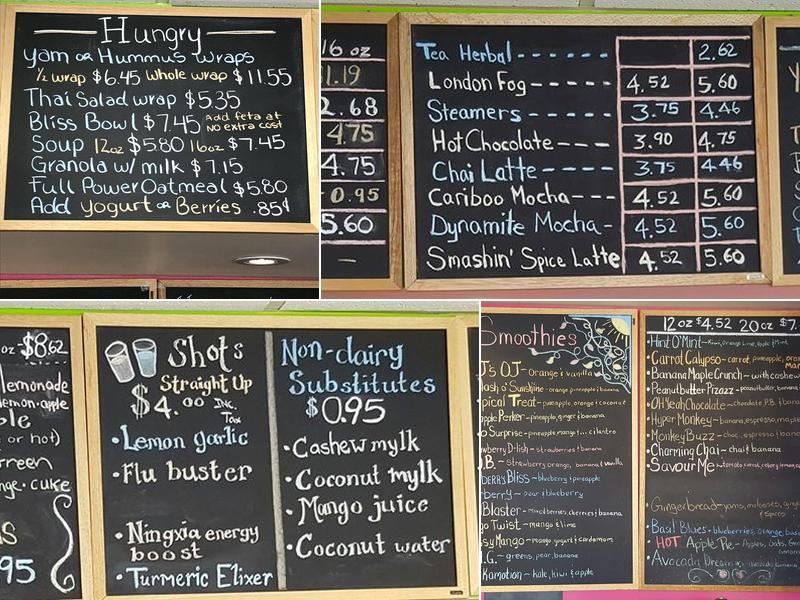 Hungry
Yam or Hummus wraps
½ wrap $6.45 Whole wrap $11.55
Thai Salad wrap $5.35
Bliss Bowl $7.45 Add feta at
No extra cost
Soup 12oz $5.80 16oz $7.45
Granola w/ milk $7.15
Full Power Oatmeal $5.80
Add yogurt or Berries .85¢
16 oz
1.19
2.68
4.75
4.75
0.95
5.60
Tea Herbal 2.62
London Fog 4.52 5.60
Steamers 3.75 4.46
Hot Chocolate 3.90 4.75
Chai Latte 3.75 4.46
Cariboo Mocha 4.52 5.60
Dynamite Mocha 4.52 5.60
Smashin' Spice Latte 4.52 5.60
oz $8.62
lemonade
lemon·apple
or hot)
95
Shots
Straight Up
$4.00 Inc.
Tax
•Lemon garlic
•Flu buster
•Ningxia energy
boost
•Turmeric Elixer
Non-dairy
Substitutes
$0.95
•Cashew mylk
•Coconut mylk
•Mango juice
•Coconut water
Smoothies
J's OJ - orange & vanilla
o' Sunshine - orange pineapple & banana
Treat - pineapple, orange & coconut
Perker - pineapple, ginger & banana
Surprise - pineapple, mango & ... cilantro
D-lish - strawberries & banana
.B. - Strawberry, orange, banana & vanilla
Bliss - blueberry & pineapple
berry - pear & blueberry
Blaster - mixed berries, cherries & banana
Twist - mango & lime
Mango - mango, yogurt & cardamom
.G. - greens, pear, banana
Kamotion - kale, kiwi & apple
12 oz $4.52 20 oz $7.
•Hint O'Mint - Kiwi, orange, lime, apple & mint
•Carrot Calypso - carrot, pineapple, orange
•Banana Maple Crunch - with cashew
•Peanutbutter Pizazz - peanutbutter, banana
•OH Yeah Chocolate - chocolate, P.B. & banana
•Hyper Monkey - banana, espresso, maple
•Monkey Buzz - choc, espresso & banana
•Charming Chai - chai & banana
•Savour Me - tomato, carrot, celery, lemon
Gingerbread - yams, molasses, ginger
& spice
•Basil Blues - blueberries, orange, basil
•HOT Apple Pie - Apples, Oats,
•Avocado Dream - avocado, banana